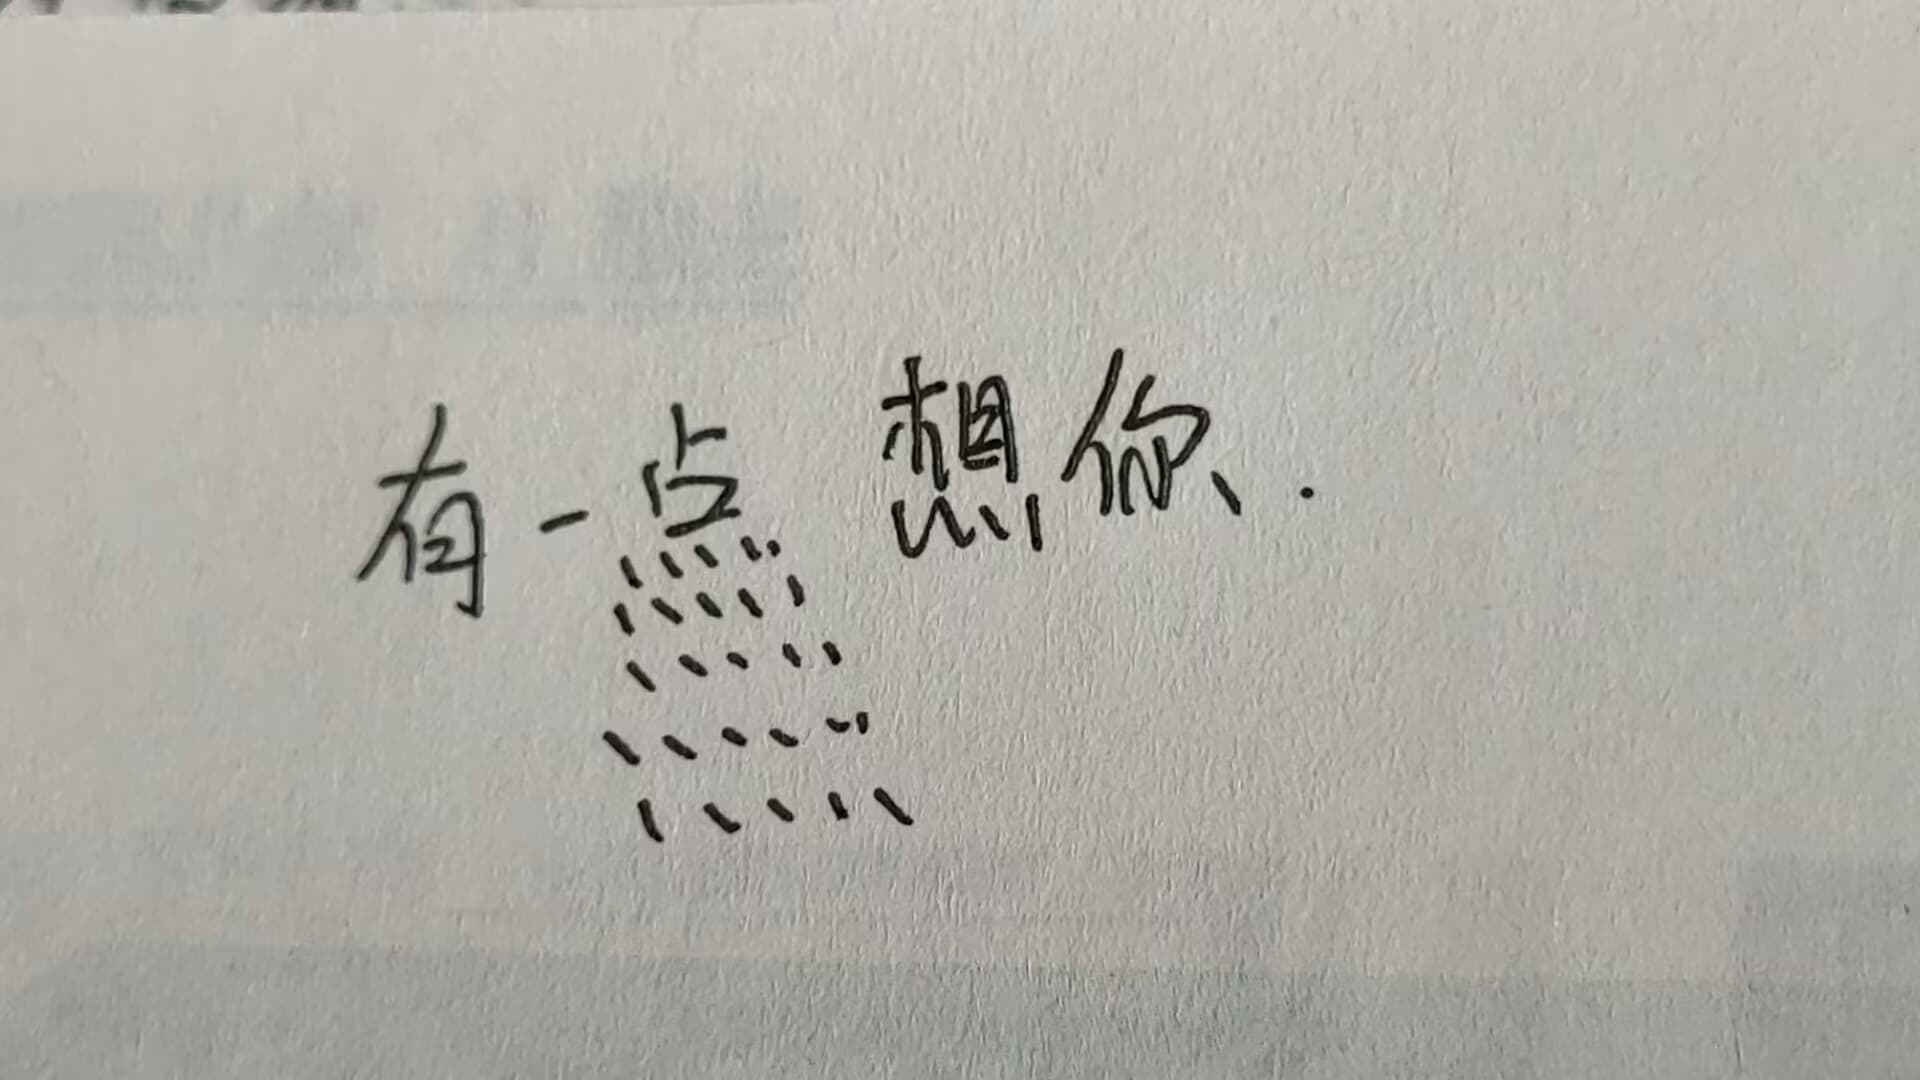 有一点 想你.